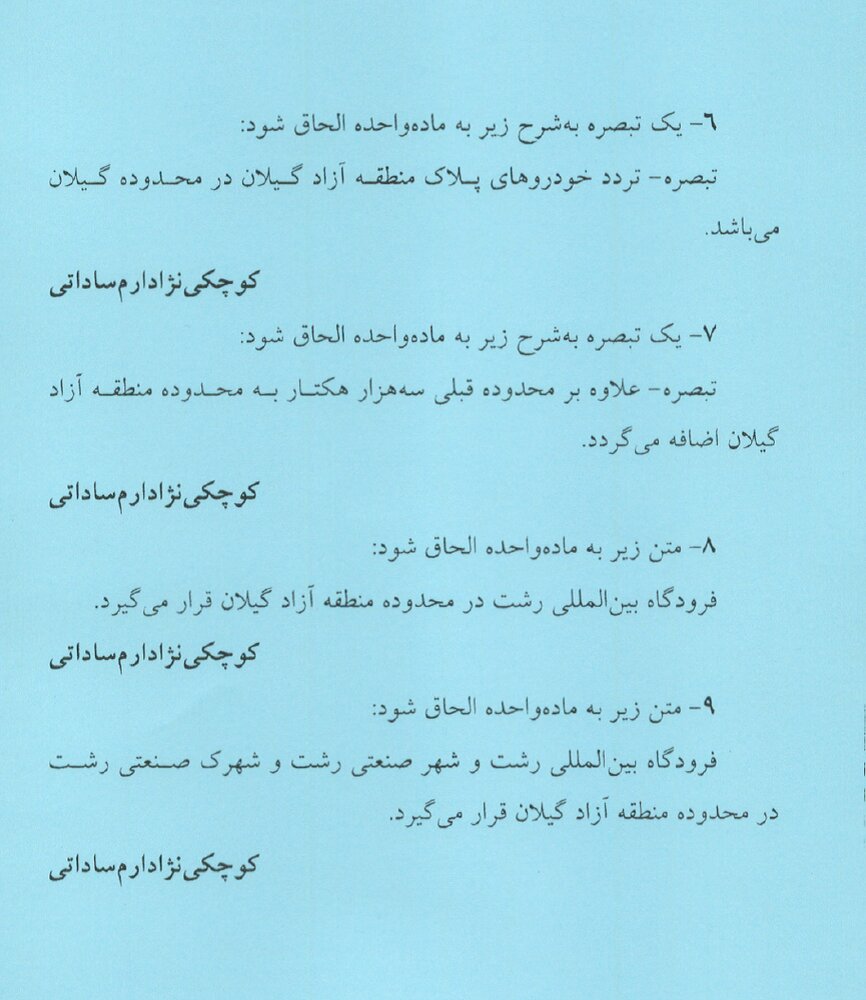 ۶- یک تبصره به‌شرح زیر به ماده‌واحده الحاق شود:
تبصره- تردد خودروهای پلاک منطقه آزاد گیلان در محدوده گیلان
می‌باشد.
کوچکی‌نژادارم‌ساداتی
۷- یک تبصره به‌شرح زیر به ماده‌واحده الحاق شود:
تبصره- علاوه بر محدوده قبلی سه‌هزار هکتار به محدوده منطقه آزاد
گیلان اضافه می‌گردد.
کوچکی‌نژادارم‌ساداتی
۸- متن زیر به ماده‌واحده الحاق شود:
فرودگاه بین‌المللی رشت در محدوده منطقه آزاد گیلان قرار می‌گیرد.
کوچکی‌نژادارم‌ساداتی
۹- متن زیر به ماده‌واحده الحاق شود:
فرودگاه بین‌المللی رشت و شهر صنعتی رشت و شهرک صنعتی رشت
در محدوده منطقه آزاد گیلان قرار می‌گیرد.
کوچکی‌نژادارم‌ساداتی